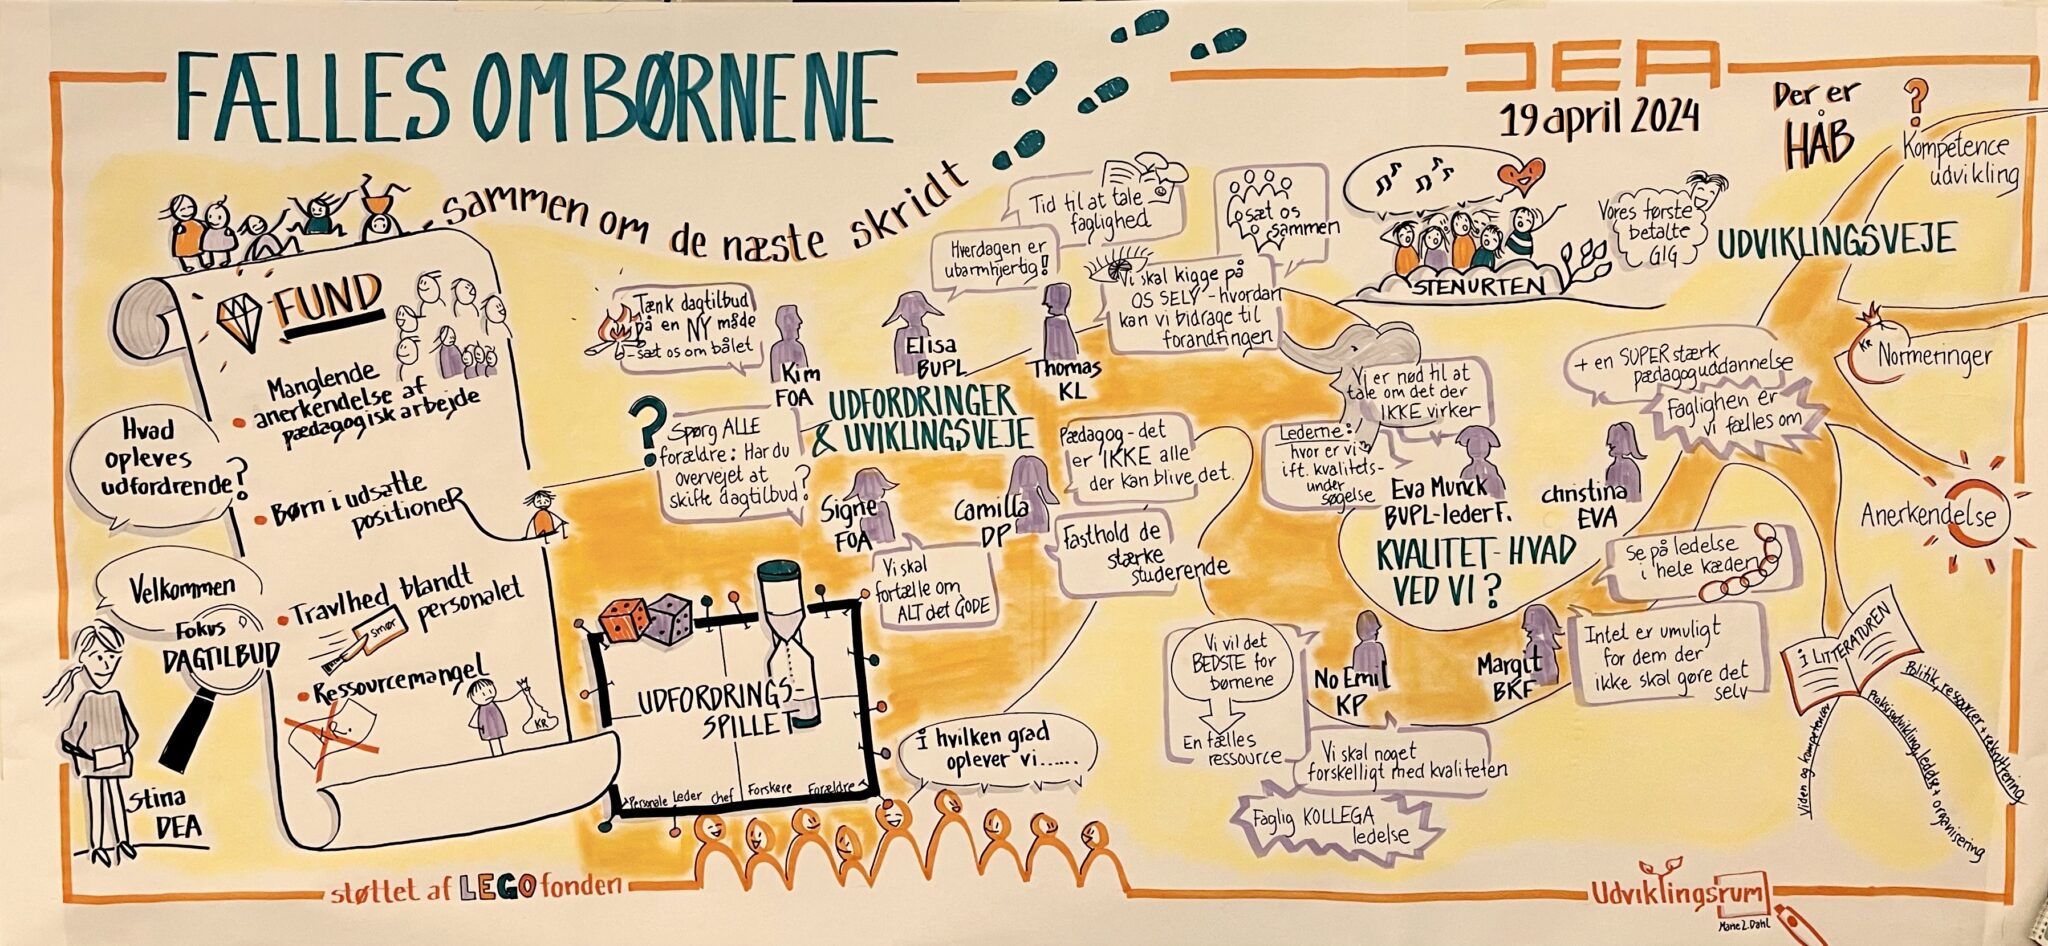 FÆLLES OM BØRNENE
DEA
19 april 2024
Der er
HÅB
?
Kompetence
udvikling
sammen om de næste skridt
FUND
Manglende
anerkendelse af
pædagogisk arbejde
Børn i udsatte
positioner
Travlhed blandt
personalet
smør
Ressourcemangel
KR.
KR
Hvad
opleves
udfordrende?
Velkommen
Fokus
DAGTILBUD
Stina
DEA
Tænk dagtilbud
på en NY måde
- sæt os om bålet
Kim
FOA
Elisa
BUPL
Hverdagen er
ubarmhjertig!
Tid til at tale
faglighed
Thomas
KL
Vi skal kigge på
OS SELV - hvordan
kan vi bidrage til
forandringen
Løsæt os
sammen
UDFORDRINGER
& UVIKLINGSVEJE
?
Spørg ALLE
forældre: Har du
overvejet at
skifte dagtilbud?
Signe
FOA
Vi skal
fortælle om
ALT det GODE
Camilla
DP
Pædagog - det
er IKKE alle
der kan blive det.
Fasthold de
stærke
studerende
UDFORDRINGS-
SPILLET
Personale Leder chef Forskere Forældre
I hvilken grad
oplever vi......
STENURTEN
Vores første
betalte
GIG
UDVIKLINGSVEJE
Vi er nød til at
tale om det der
IKKE virker
Lederne:
hvor er vi
ift. kvalitets-
under
søgelse
Eva Munck
BUPL-lederF.
christina
EVA
+ en SUPER stærk
pædagoguddannelse
Fagligheden er
vi fælles om
KVALITET - HVAD
VED VI?
Se på ledelse
i hele kæden
Vi vil det
BEDSTE for
børnene
En fælles
ressource
No Emil
KP
Vi skal noget
forskelligt med kvaliteten
Faglig KOLLEGA
ledelse
Margit
BKF
Intet er umuligt
for dem der
ikke skal gøre det
selv
KR
Normeringer
Anerkendelse
I LITTERATUREN
Viden og kompetencer
Praksisudvikling, ledelse + organisering
Politik, ressourcer + rekruttering
støttet af LEGO fonden
Udviklingsrum
Marie Z. Dahl